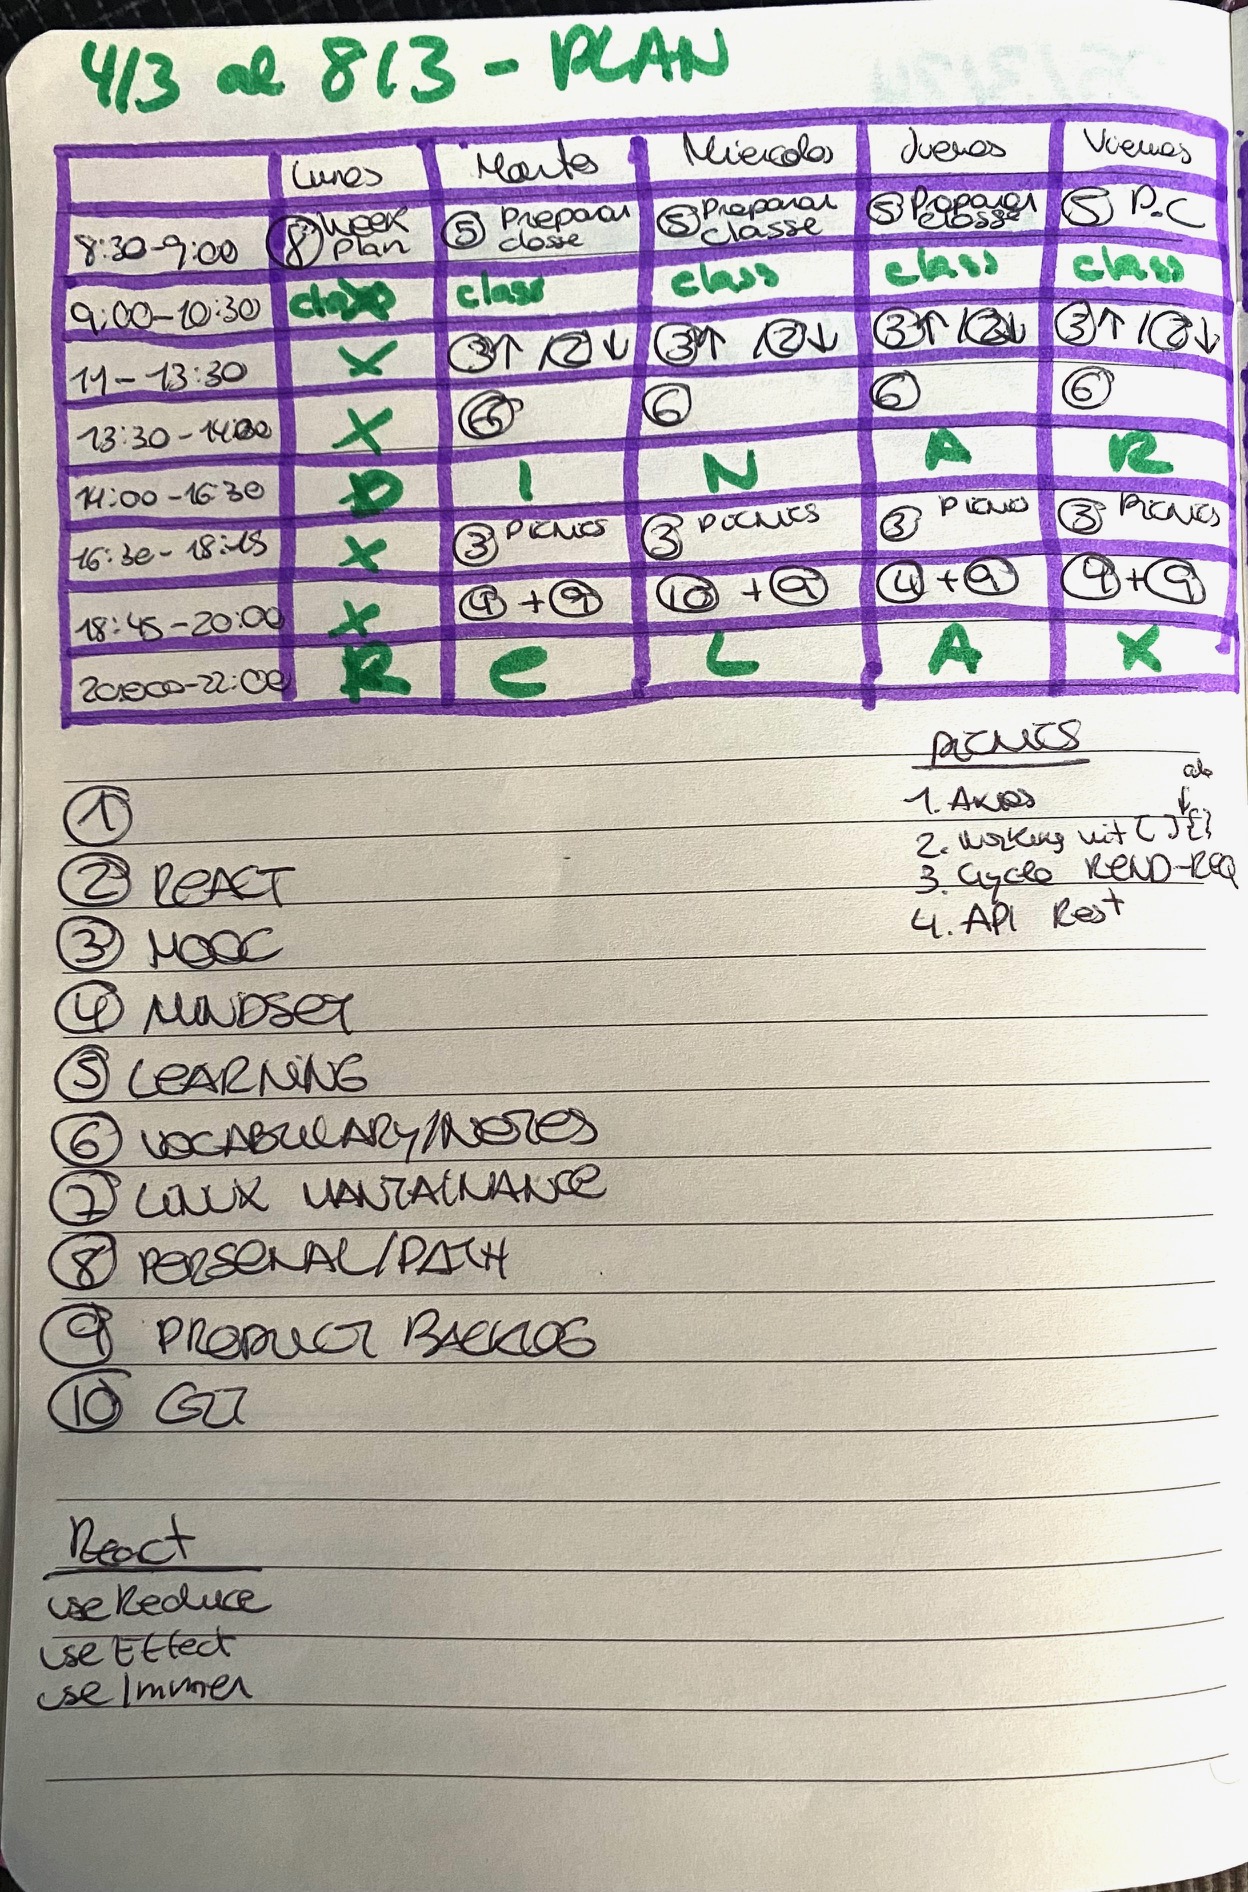 4/3 al 8/3 - PLAN
Lunes Martes Miercoles Jueves Viernes
8:30-9:00 ⑧ Week Plan ⑤ Preparar classe ⑤ Preparar classe ⑤ Preparar classe ⑤ P.C
9:00-10:30 class class class class class
11-13:30 X ③↑ /②↓ ③↑ /②↓ ③↑ /②↓ ③↑ /②↓
13:30-14:00 X ⑥ ⑥ ⑥ ⑥
14:00-16:30 D I N A R
16:30-18:15 X ③ PICNICS ③ PICNICS ③ PICNIC ③ PICNICS
18:45-20:00 X ④ + ⑨ ⑩ + ⑨ ④ + ⑨ ④ + ⑨
20:00-22:00 R E L A X
PICNICS
1. Axios
ab
↓
2. Working wit [ ] {}
3. Cycle REND-REQ
4. API Rest
①
② REACT
③ MOOC
④ MINDSET
⑤ LEARNING
⑥ VOCABULARY/NOTES
⑦ LINUX MANTAINANCE
⑧ PERSONAL/PATH
⑨ PRODUCT BACKLOG
⑩ GIT
React
useReduce
useEffect
useImmer